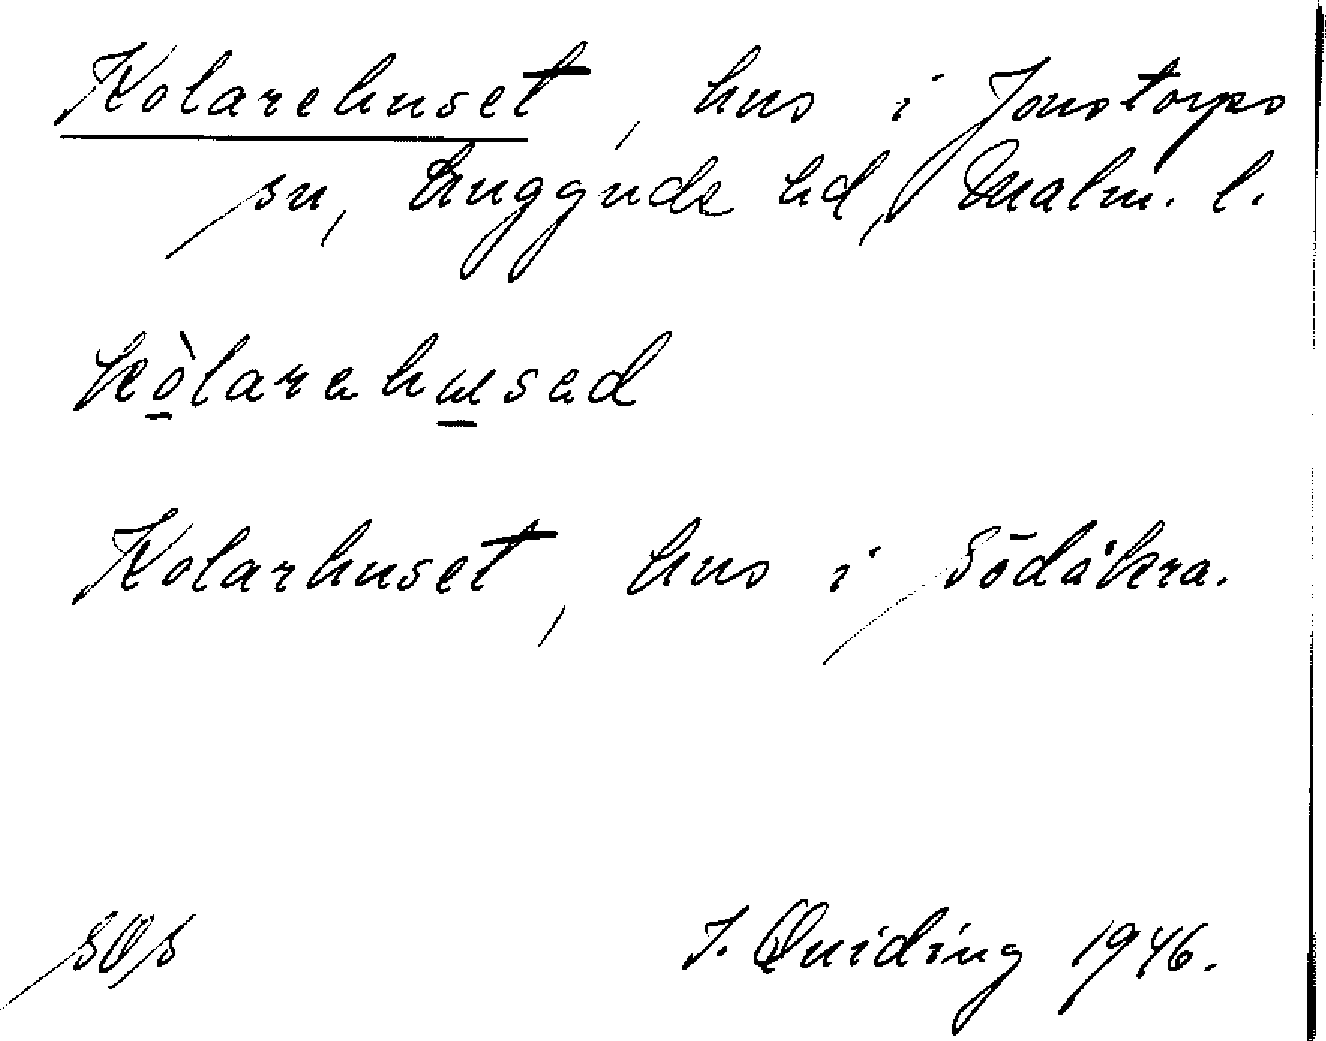 Kolarehuset, hus i Jonstorps
sn, Luggude hd, Malm. l.
kòlarahusad
Kolarhuset, hus i Södåkra.
SOS J. Quiding 1946.